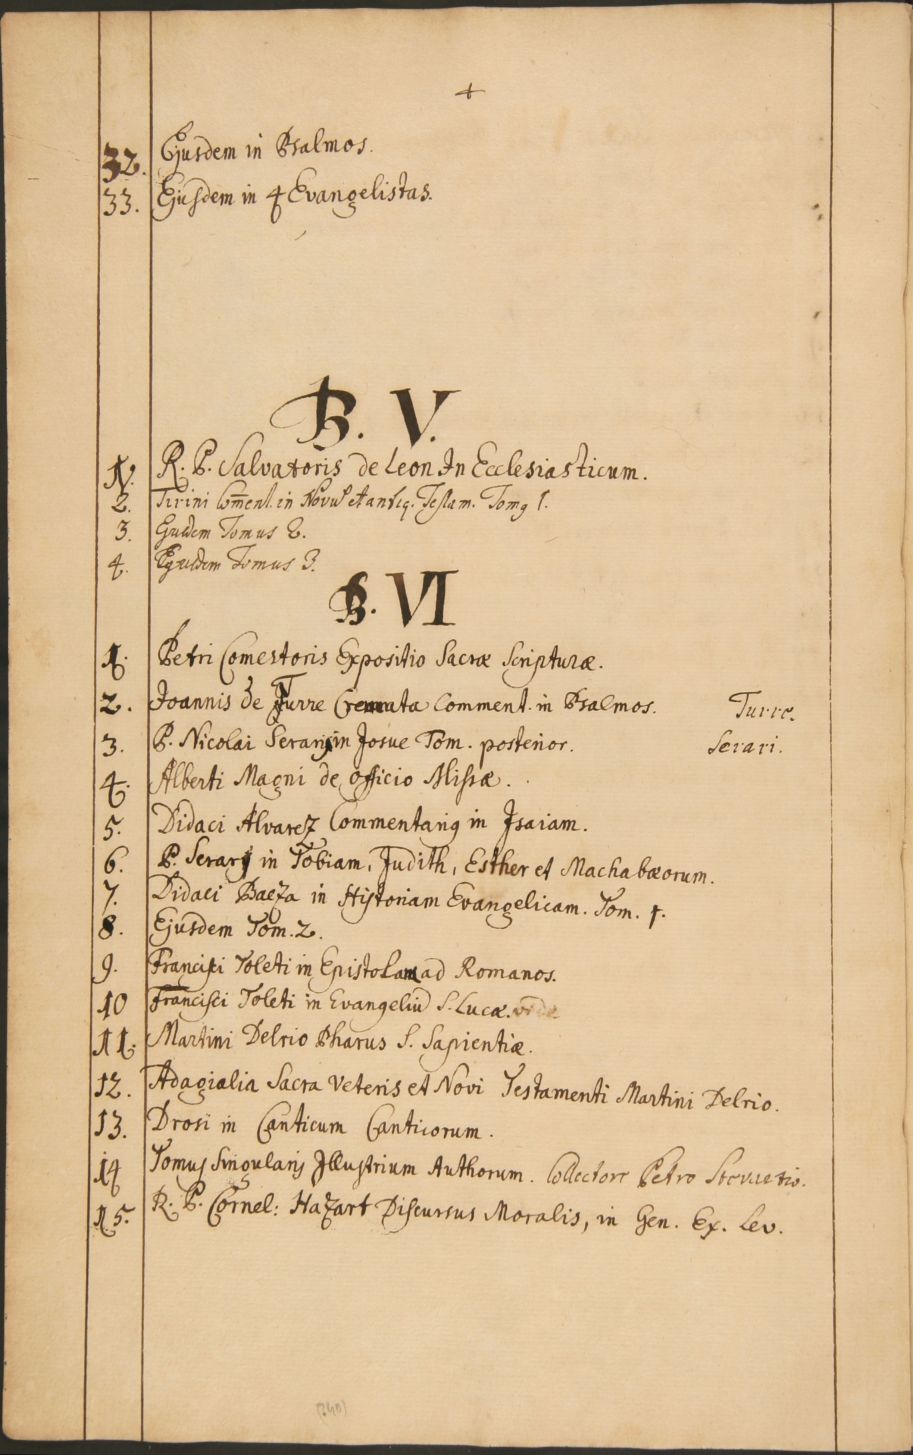 +
32. Ejusdem in Psalmos.
33. Ejusdem in 4 Evangelistas.
B. V.
1. R. P. Salvatoris de Leon In Ecclesiasticum.
2. Tirini Com̄ent. in Novū et antiq. Testam. Tomg 1.
3. Ejusdem Tomus 2.
4. Ejusdem Tomus 3.
B. VI
1. Petri Comestoris Expositio Sacræ Scripturæ.
2. Joannis de Turre Cremata Comment. in Psalmos. Turre.
3. P. Nicolai Serarij in Josue Tom. posterior. Serari.
4. Alberti Magni de officio Missæ.
5. Didaci Alvarez Commentarig in Isaiam.
6. P. Serarij in Tobiam, Judith, Esther et Machabæorum.
7. Didaci Baeza in Historiam Evangelicam. Tom. 1.
8. Ejusdem Tom. 2.
9. Francisci Toleti in Epistolam ad Romanos.
10 Francisci Toleti in Evangeliū S. Lucæ.
11. Martini Delrio Pharus S. Sapientiæ.
12. Adagialia Sacra Veteris et Novi Testamenti Martini Delrio.
13. Drosi in Canticum Canticorum.
14 Tomus Singularis Illustrium Authorum. Collectore Petro Stevartio.
15. R. P. Cornel: Hazart Discursus Moralis, in Gen. Ex. Lev.
(240)